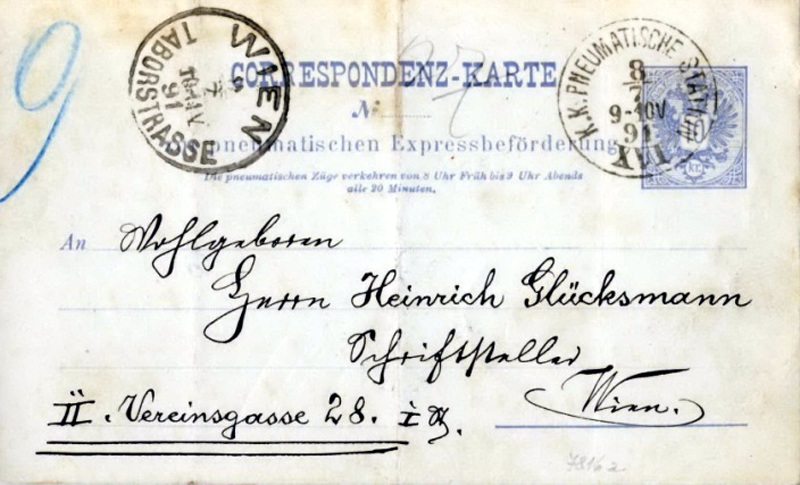 9
27
CORRESPONDENZ-KARTE
№
pneumatischen Expressbeförderung
Die pneumatischen Züge verkehren von 8 Uhr Früh bis 9 Uhr Abends
alle 20 Minuten.
WIEN
TABORSTRASSE
91
K.K. PNEUMATISCHE STATION
8
7
9-10V
91
10
kr.
An Wohlgeboren
Herrn Heinrich Glücksmann
Schriftsteller
Wien.
II. Vereinsgasse 28.